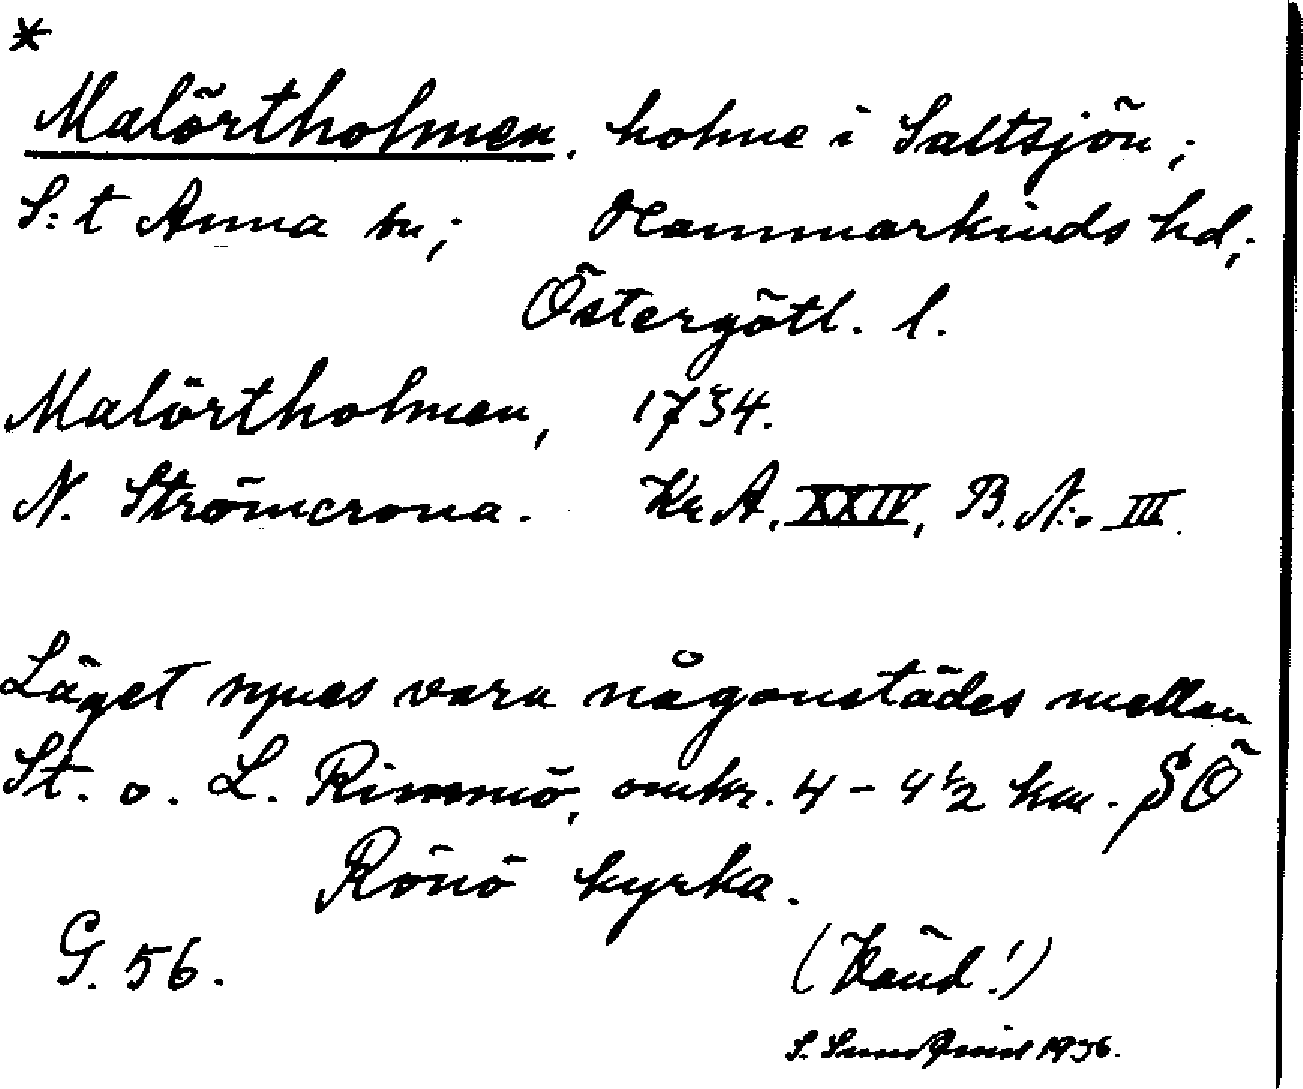 *
Malörtholmen. holme i Saltsjön;
S:t Anna sn; Hammarkinds hd;
Östergötl. l.
Malörtholmen, 1734.
N. Strömcrona. Kr A. XXIV, B. N:o III.
Läget synes vara någonstädes mellan
St. o. L. Rimmö, omkr. 4 - 4 1/2 km. SÖ
Rönö kyrka.
G. 56.
(Känd!)
S. 1936.